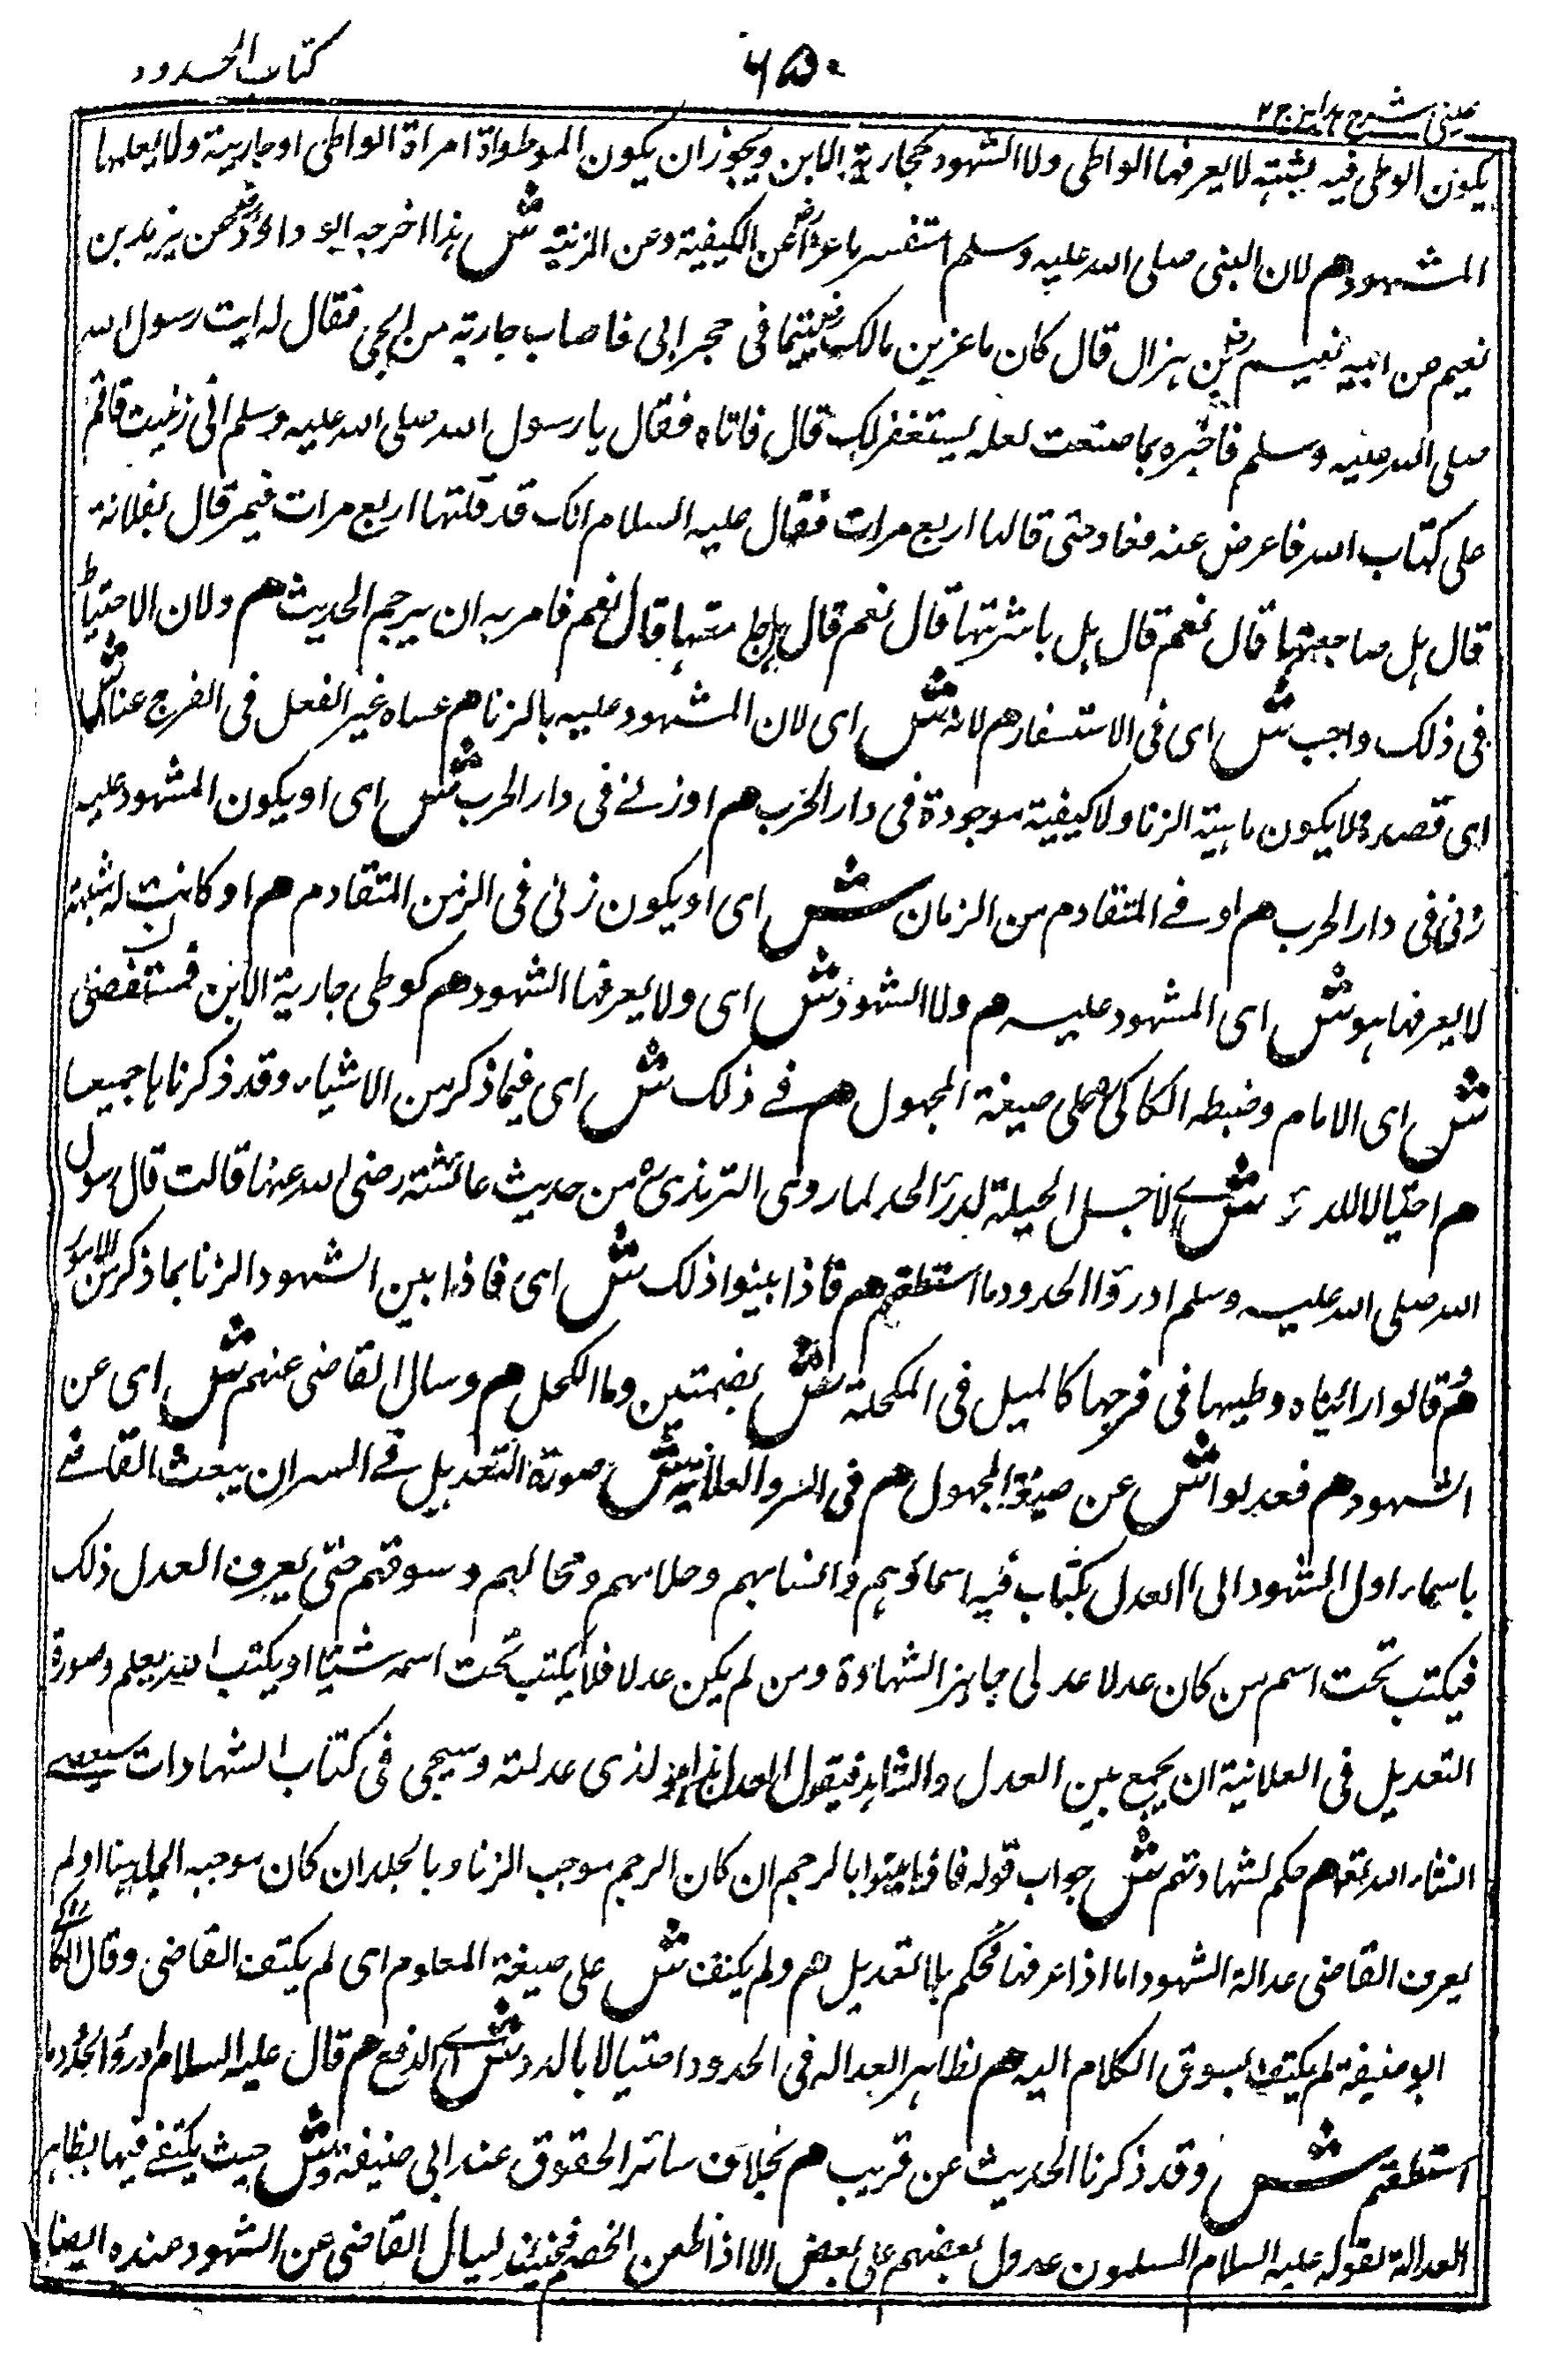 كتاب الحدود
٦٥٠
عينى شرح هدايه ج٢
يكون الوطى فيه بشبهة لا يعرفها الواطى ولا الشهود كجارية الابن ويجوز ان يكون الموطواة امراة الواطى او جارية ولا يعلمها
المشهود هم لان النبى صلى الله عليه وسلم استفسر ماعزا عن الكيفية وعن المزنية ش هذا اخرجه ابو داود عن يزيد بن
نعيم عن ابيه نعيم بن هزال قال كان ماعز بن مالك يتيما فى حجر ابى فاصاب جارية من الحى فقال له ايت رسول الله
صلى الله عليه وسلم فاخبره بما صنعت لعله يستغفر لك قال فاتاه فقال يا رسول الله صلى الله عليه وسلم انى زنيت فاقم
على كتاب الله فاعرض عنه فعاد حتى قالها اربع مرات فقال عليه السلام انك قد قلتها اربع مرات فبمن قال بفلانة
قال هل ضاجعتها قال نعم قال هل باشرتها قال نعم قال هل جامعتها قال نعم فامر به ان يرجم الحديث هم ولان الاحتياط
فى ذلك واجب ش اى فى الاستفسار هم لانه ش اى لان المشهود عليه بالزنا هم عساه غير الفعل فى الفرج عناه ش
اى قصده فلا يكون ماهية الزنا ولا كيفية موجودة فى دار الحرب هم او زنے فى دار الحرب ش اى او يكون المشهود عليه
زنى فى دار الحرب هم او فے المتقادم من الزمان ش اى او يكون زنى فى الزمن المتقادم هم او كانت له شبهة
لا يعرفها هو ش اى المشهود عليه هم ولا الشهود ش اى ولا يعرفها الشهود هم كوطى جارية الابن فيستقصى
ش اى الامام وضبطه الكاكى على صيغة المجهول هم فے ذلك ش اى فيما ذكر من الاشياء وقد ذكرناها جميعا
هم احتيالا للدرء ش اے لاجل الحيلة لدرء الحد لما روى الترمذى من حديث عائشة رضى الله عنها قالت قال رسول
الله صلى الله عليه وسلم ادرؤا الحدود ما استطعتم هم فاذا بينوا ذلك ش اى فاذا بين الشهود الزنا بما ذكر من الامور
هم قالوا رائيناه وطيها فى فرجها كالميل فى المكحلة ش بضمتين وما الكحل هم وسال القاضى عنهم ش اى عن
الشهود هم فعدلوا ش عن صيغة المجهول هم فى السر والعلانية ش صورة التعديل فے السر ان يبعث القاضے
باسماء اول الشهود الى العدل بكتاب فيه اسماؤهم وانسابهم وحلاهم ومحالهم وسوقهم حتى يعرف العدل ذلك
فيكتب تحت اسم من كان عدلا عدلى جايز الشهادة ومن لم يكن عدلا فلا يكتب تحت اسمه شيئا او يكتب الله يعلم وصورة
التعديل فى العلانية ان يجمع بين العدل والشاهد فيقول العدل هذا هو لذى عدلته وسيجى فى كتاب الشهادات
انشاء الله تعالى هم حكم بشهادتهم ش جواب قوله فاذا بينوا بالرجم ان كان الرجم موجب الزنا وبالجلد ان كان موجبه الجلد هذا اولم
يعرف القاضى عدالة الشهود اما اذا عرفها فحكم بلا التعديل هم ولم يكتف ش على صيغة المعلوم اى لم يكتف القاضى وقال الكاكى
ابو حنيفة لم يكتف بسوق الكلام اليه هم بظاهر العدالة فى الحدود احتيالا بالدرء ش اے الدفع هم قال عليه السلام ادرؤ الحدود ما
استطعتم ش وقد ذكرنا الحديث عن قريب هم بخلاف سائر الحقوق عند ابى حنيفة ش حيث يكتفے فيها بظاهر
العدالة لقوله عليه السلام المسلمون عدول بعضهم على بعض الا اذا طعن الخصم فحينئذ ليسال القاضى عن الشهود عنده ايضا